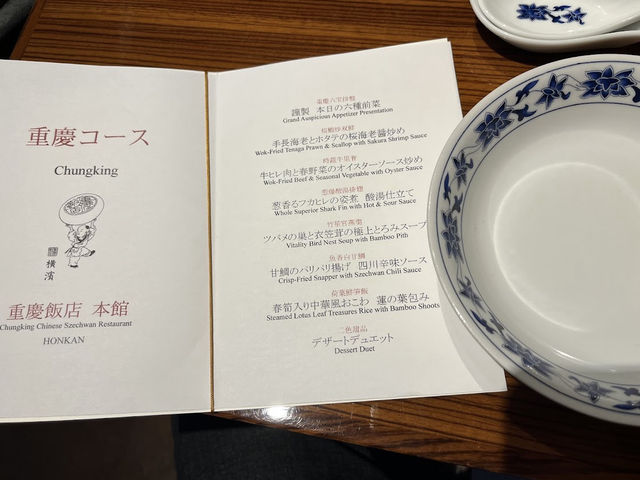 重慶コース
Chungking
横濱
重慶飯店 本館
Chungking Chinese Szechwan Restaurant
HONKAN
重慶六宝拼盤
謹製 本日の六種前菜
Grand Auspicious Appetizer Presentation
手長海老とホタテの桜海老醤炒め
Wok-Fried Tenaga Prawn & Scallop with Sakura Shrimp Sauce
時蔬牛里脊
牛ヒレ肉と春野菜のオイスターソース炒め
Wok-Fried Beef & Seasonal Vegetable with Oyster Sauce
葱香るフカヒレの姿煮 酸湯仕立て
Whole Superior Shark Fin with Hot & Sour Sauce
竹笙官燕羹
ツバメの巣と衣笠茸の極上とろみスープ
Vitality Bird Nest Soup with Bamboo Pith
魚香白甘鯛
甘鯛のパリパリ揚げ 四川辛味ソース
Crisp-Fried Snapper with Szechwan Chili Sauce
荷葉鮮笋飯
春筍入り中華風おこわ 蓮の葉包み
Steamed Lotus Leaf Treasures Rice with Bamboo Shoots
二色甜品
デザートデュエット
Dessert Duet